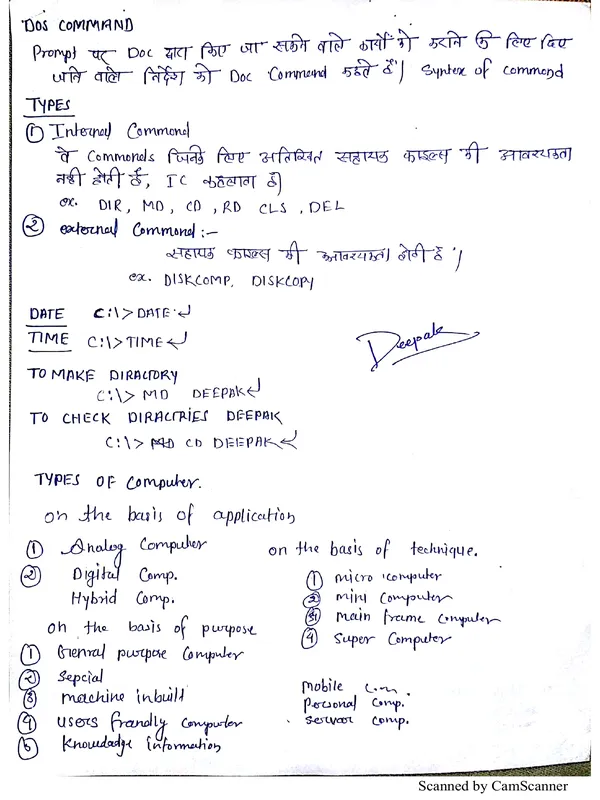 DOS COMMAND
Prompt पर Doc द्वारा किए जा सकने वाले कार्यों को कराने के लिए दिए
जाने वाले निर्देश को Doc Command कहते हैं। Syntex of command
TYPES
① Internal Command
वे Commands जिनके लिए अतिरिक्त सहायक फाइल्स की आवश्यकता
नहीं होती हैं, IC कहलाता है।
ex. DIR, MD, CD, RD CLS, DEL
② external Command :-
सहायक फाइल्स की आवश्यकता होती है।
ex. DISKCOMP, DISKCOPY
DATE C:\> DATE ↵
TIME C:\> TIME ↵
Deepak
TO MAKE DIRACTORY
C:\> MD DEEPAK ↵
TO CHECK DIRACTRIES DEEPAK
C:\> CD DEEPAK ↵
TYPES OF Computer.
on the basis of application
① Analog Computer
② Digital Comp.
Hybrid Comp.
on the basis of technique.
① micro computer
② mini computer
③ main frame computer
④ Super Computer
on the basis of purpose
① Genral purpose Computer
② Sepcial
③ machine inbuilt
④ users frandly computer
⑤ Knowdadge information
Mobile
Personal Comp.
Servar comp.
Scanned by CamScanner